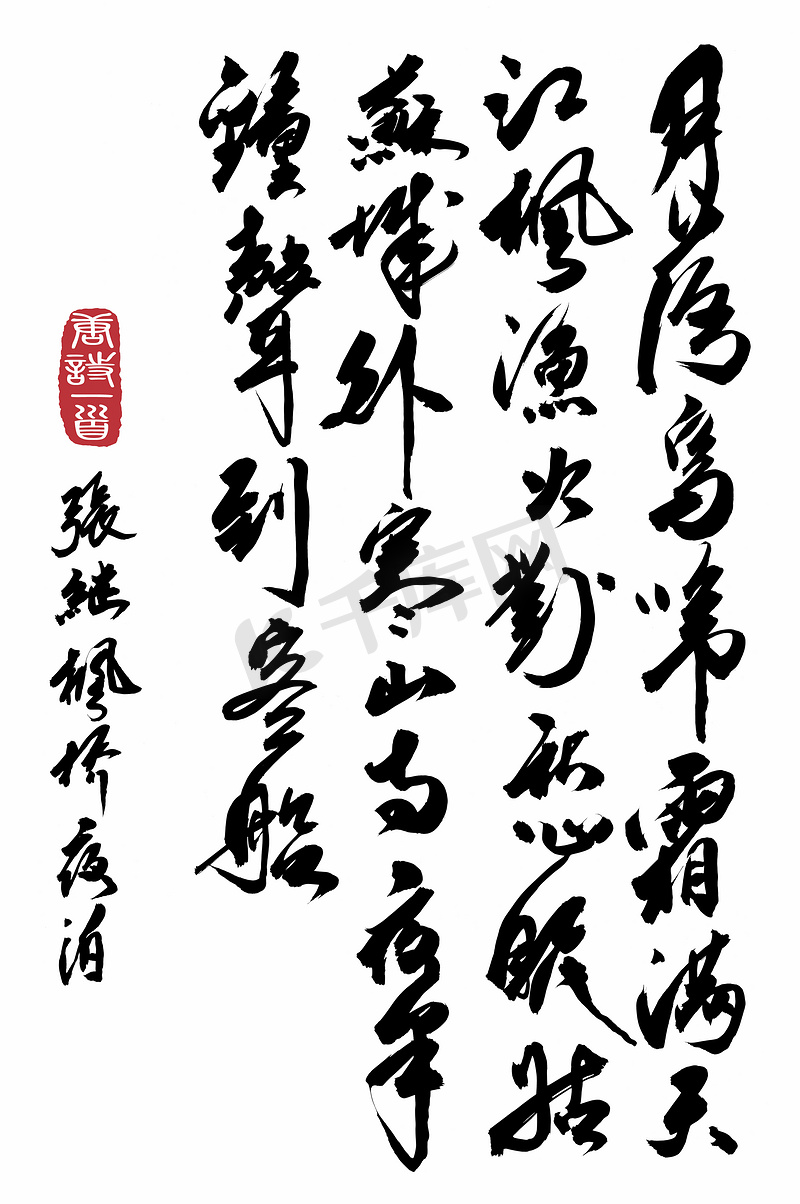 月落烏啼霜滿天
江楓漁火對愁眠姑
蘇城外寒山寺夜半
鐘聲到客船
唐詩一首
張継楓橋夜泊
千库网